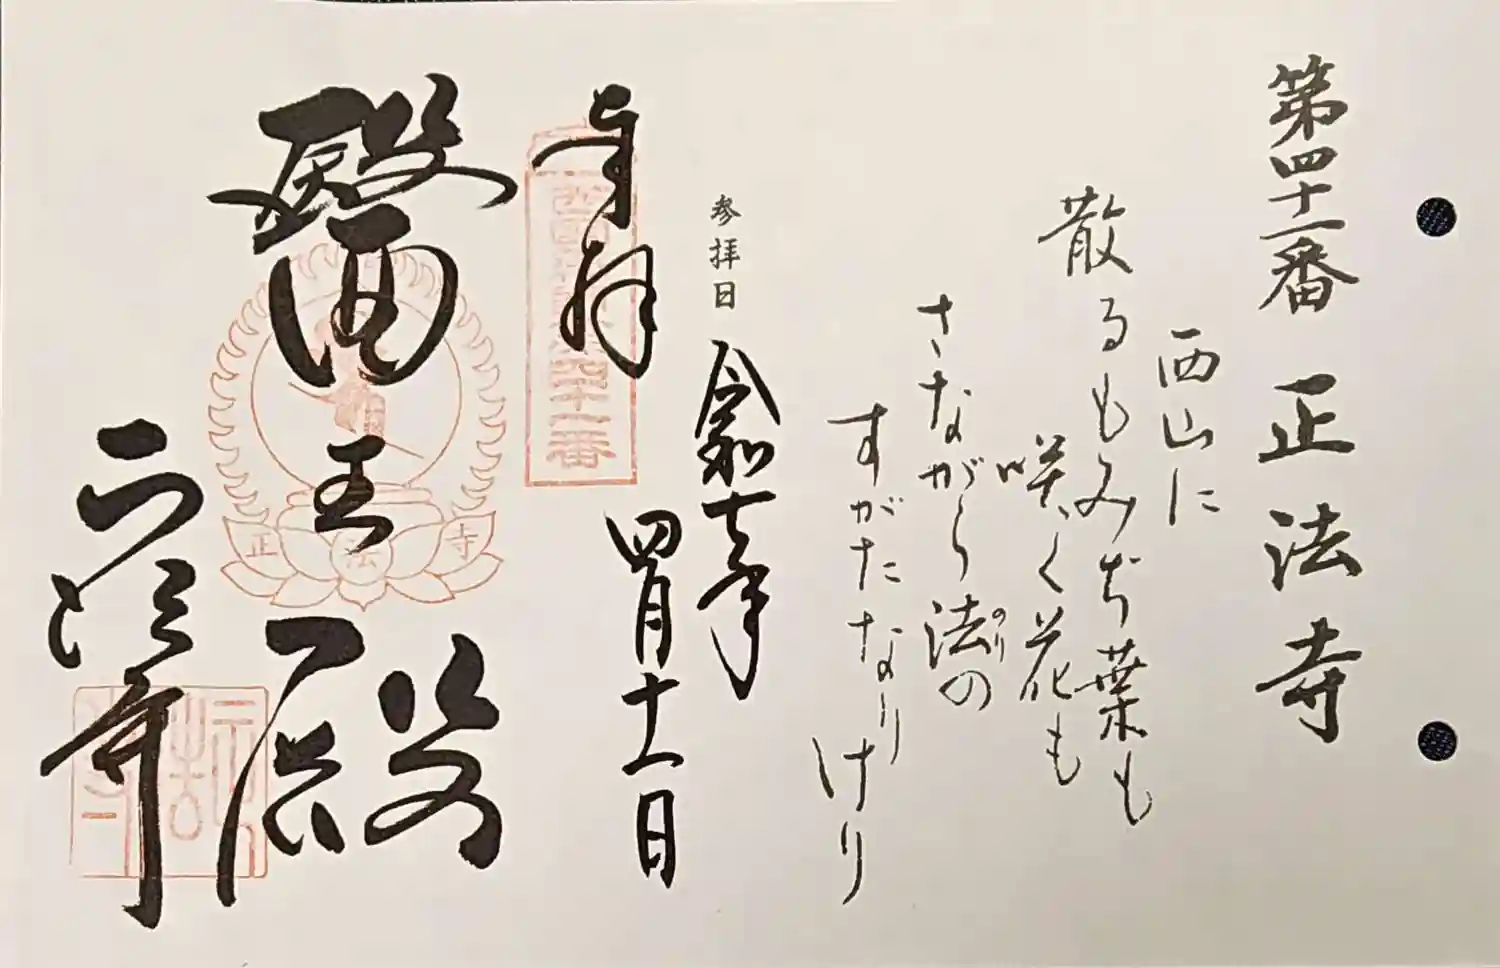 第四十一番 正法寺
西山に
散るもみぢ葉も
咲く花も
さながら法の
のり
すがたなりけり
参拝日 令和七年
四月十一日
奉拝
醫王殿
正法寺
正法寺